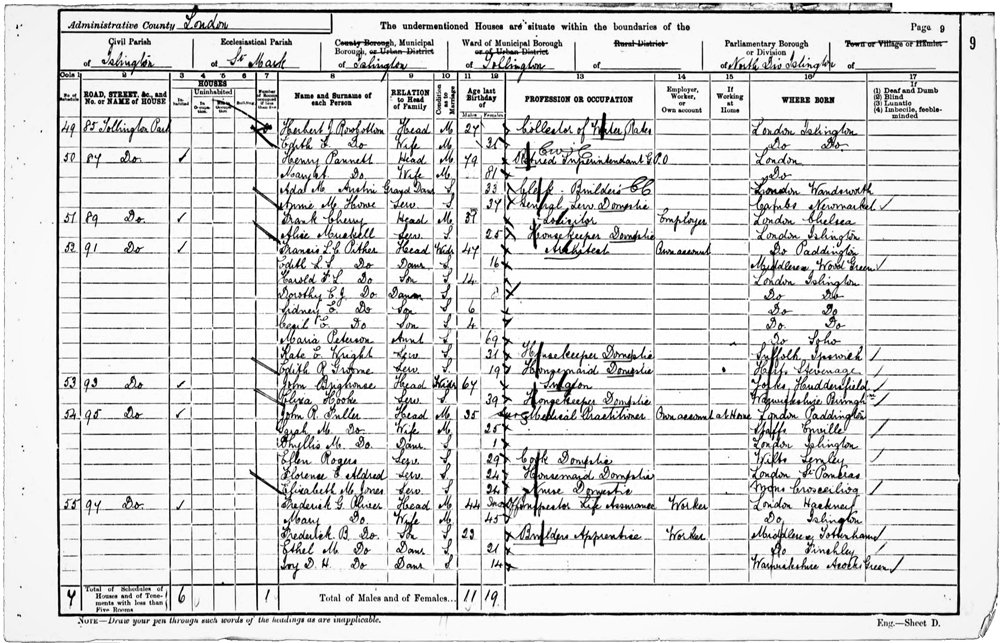 Administrative County London
The undermentioned Houses are situate within the boundaries of the
Page 9
9
Civil Parish
of Islington
Ecclesiastical Parish
of St Mark
County Borough, Municipal Borough, or Urban District
of Islington
Ward of Municipal Borough or of Urban District
of Tollington
Rural District
of
Parliamentary Borough or Division
of North Div Islington
Town or Village or Hamlet
of
Cols 1 2 3 4 5 6 7 8 9 10 11 12 13 14 15 16 17
No. of Schedule
ROAD, STREET, &c., and No. or NAME of HOUSE
HOUSES
Inhabited
Uninhabited
In Occupation
Not in Occupation
Building
Name and Surname of each Person
RELATION to Head of Family
Condition as to Marriage
Age last Birthday of
Males Females
PROFESSION OR OCCUPATION
Employer, Worker, or Own account
If Working at Home
WHERE BORN
(1) Deaf and Dumb
(2) Blind
(3) Lunatic
(4) Imbecile, feeble-minded
49 85 Tollington Park Herbert J Head M 27 Collector of Water Rates London Islington
Edith Do Wife M Do Do
50 87 Do. Henry Pannett Head M 79 Retired Superintendant G.P.O London
Margt Do. Wife M 81 Do
Ada M. Austin Grand Daur S 33 Clerk Builders London Wandsworth
Annie M. Howe Serv. S 27 General Serv Domestic Cambs Newmarket
51 89 Do. Frank Cherry Head M 31 Solicitor Employer London Chelsea
Alice Serv. S 25 Housekeeper Domestic London Islington
52 91 Do Francis Pither Head Widr 47 Architect Own account Do Paddington
Edith Do Daur S 16 Middlesex Wood Green
Harold Do Son S 14 London Islington
Dorothy Do Daur S 8 Do Do
Sidney E. Do Son S 6 Do Do
Cecil E. Do Son S 4 Do. Do
Maria Peterson Aunt S 69 Do Soho
Kate E. Wright Serv. S 31 Housekeeper Domestic Suffolk Ipswich
Edith R Groome Serv. S 19 Housemaid Domestic Herts Stevenage
53 93 Do John Brighouse Head Widr 67 Surgeon Yorks Huddersfield
Eliza Hooke Serv. S 39 Housekeeper Domestic Warwickshire Birmghm
54 95 Do. John R. Fuller Head M 35 Medical Practitioner Own account at Home London Paddington
Sarah M. Do. Wife M 25 Staffs Enville
Phyllis M. Do. Daur. S 1 London Islington
Ellen Rogers Serv. S 29 Cook Domestic Wilts Semley
Florence E Aldred Serv. S 24 Housemaid Domestic London St Pancras
Elizabeth M. Jones Serv. S 24 Nurse Domestic
55 97 Do. Frederick G. Oliver Head M 44 Inspector Life Assurance Worker London Hackney
Mary Do. Wife M 45 Do. Islington
Frederick B. Do. Son S 23 Builders Apprentice Worker Middlesex Tottenham
Ethel M. Do Daur S 21 Do Finchley
Ivy D. H. Do Daur S 14 Warwickshire Acocks Green
7 Total of Schedules of Houses and of Tenements with less than Five Rooms 6 1 Total of Males and of Females... 11 19
NOTE—Draw your pen through such words of the headings as are inapplicable.
Eng.—Sheet D.